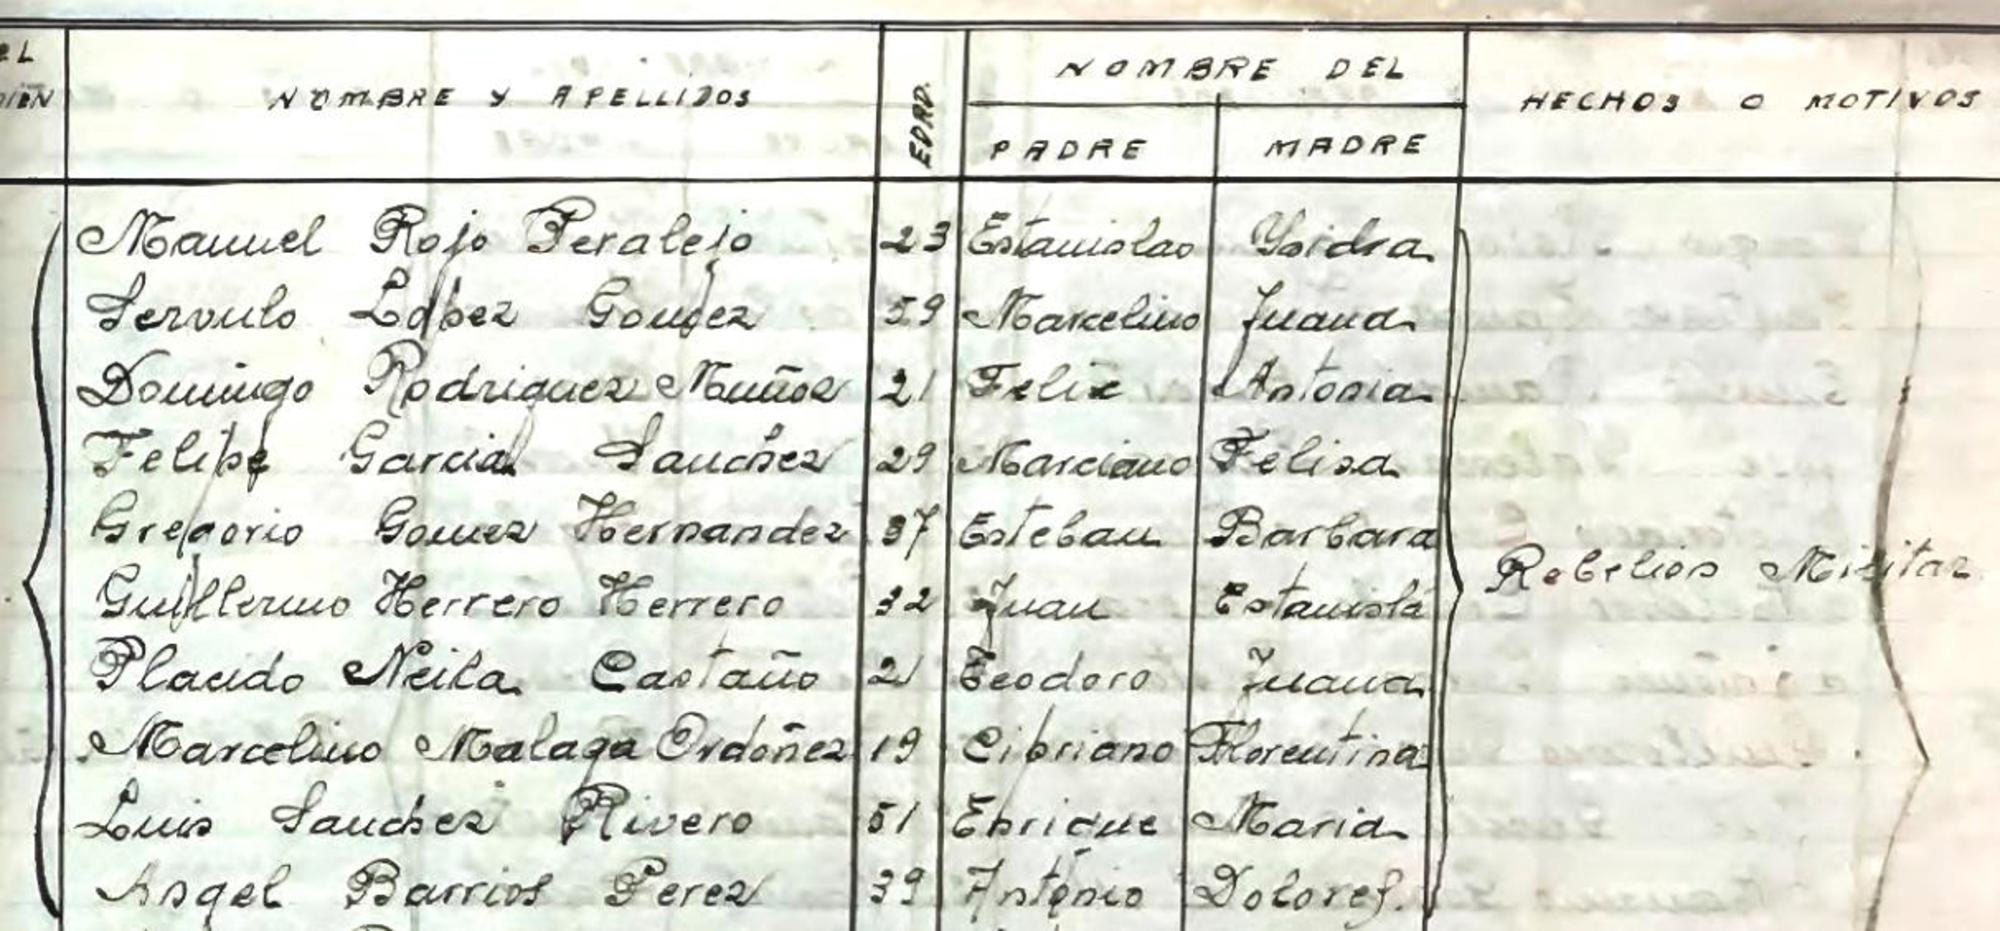 EL
NOMBRE Y APELLIDOS
EDAD.
NOMBRE DEL
PADRE
MADRE
HECHOS O MOTIVOS
Manuel Rojo Peralejo 23 Estanislao Ysidra
Servulo López Gomez 59 Marcelino Juana
Domingo Rodriguez Muñoz 21 Felix Antonia
Felipe Garcia Sanchez 29 Marciano Felisa
Gregorio Gomez Hernandez 37 Esteban Barbara
Rebelion Militar
Guillermo Herrero Herrero 32 Juan Estanisla
Placido Neila Castaño 21 Teodoro Juana
Marcelino Malaga Ordoñez 19 Cipriano Florentina
Luis Sanchez Rivero 51 Enrique Maria
Angel Barrios Perez 39 Antonio Dolores.